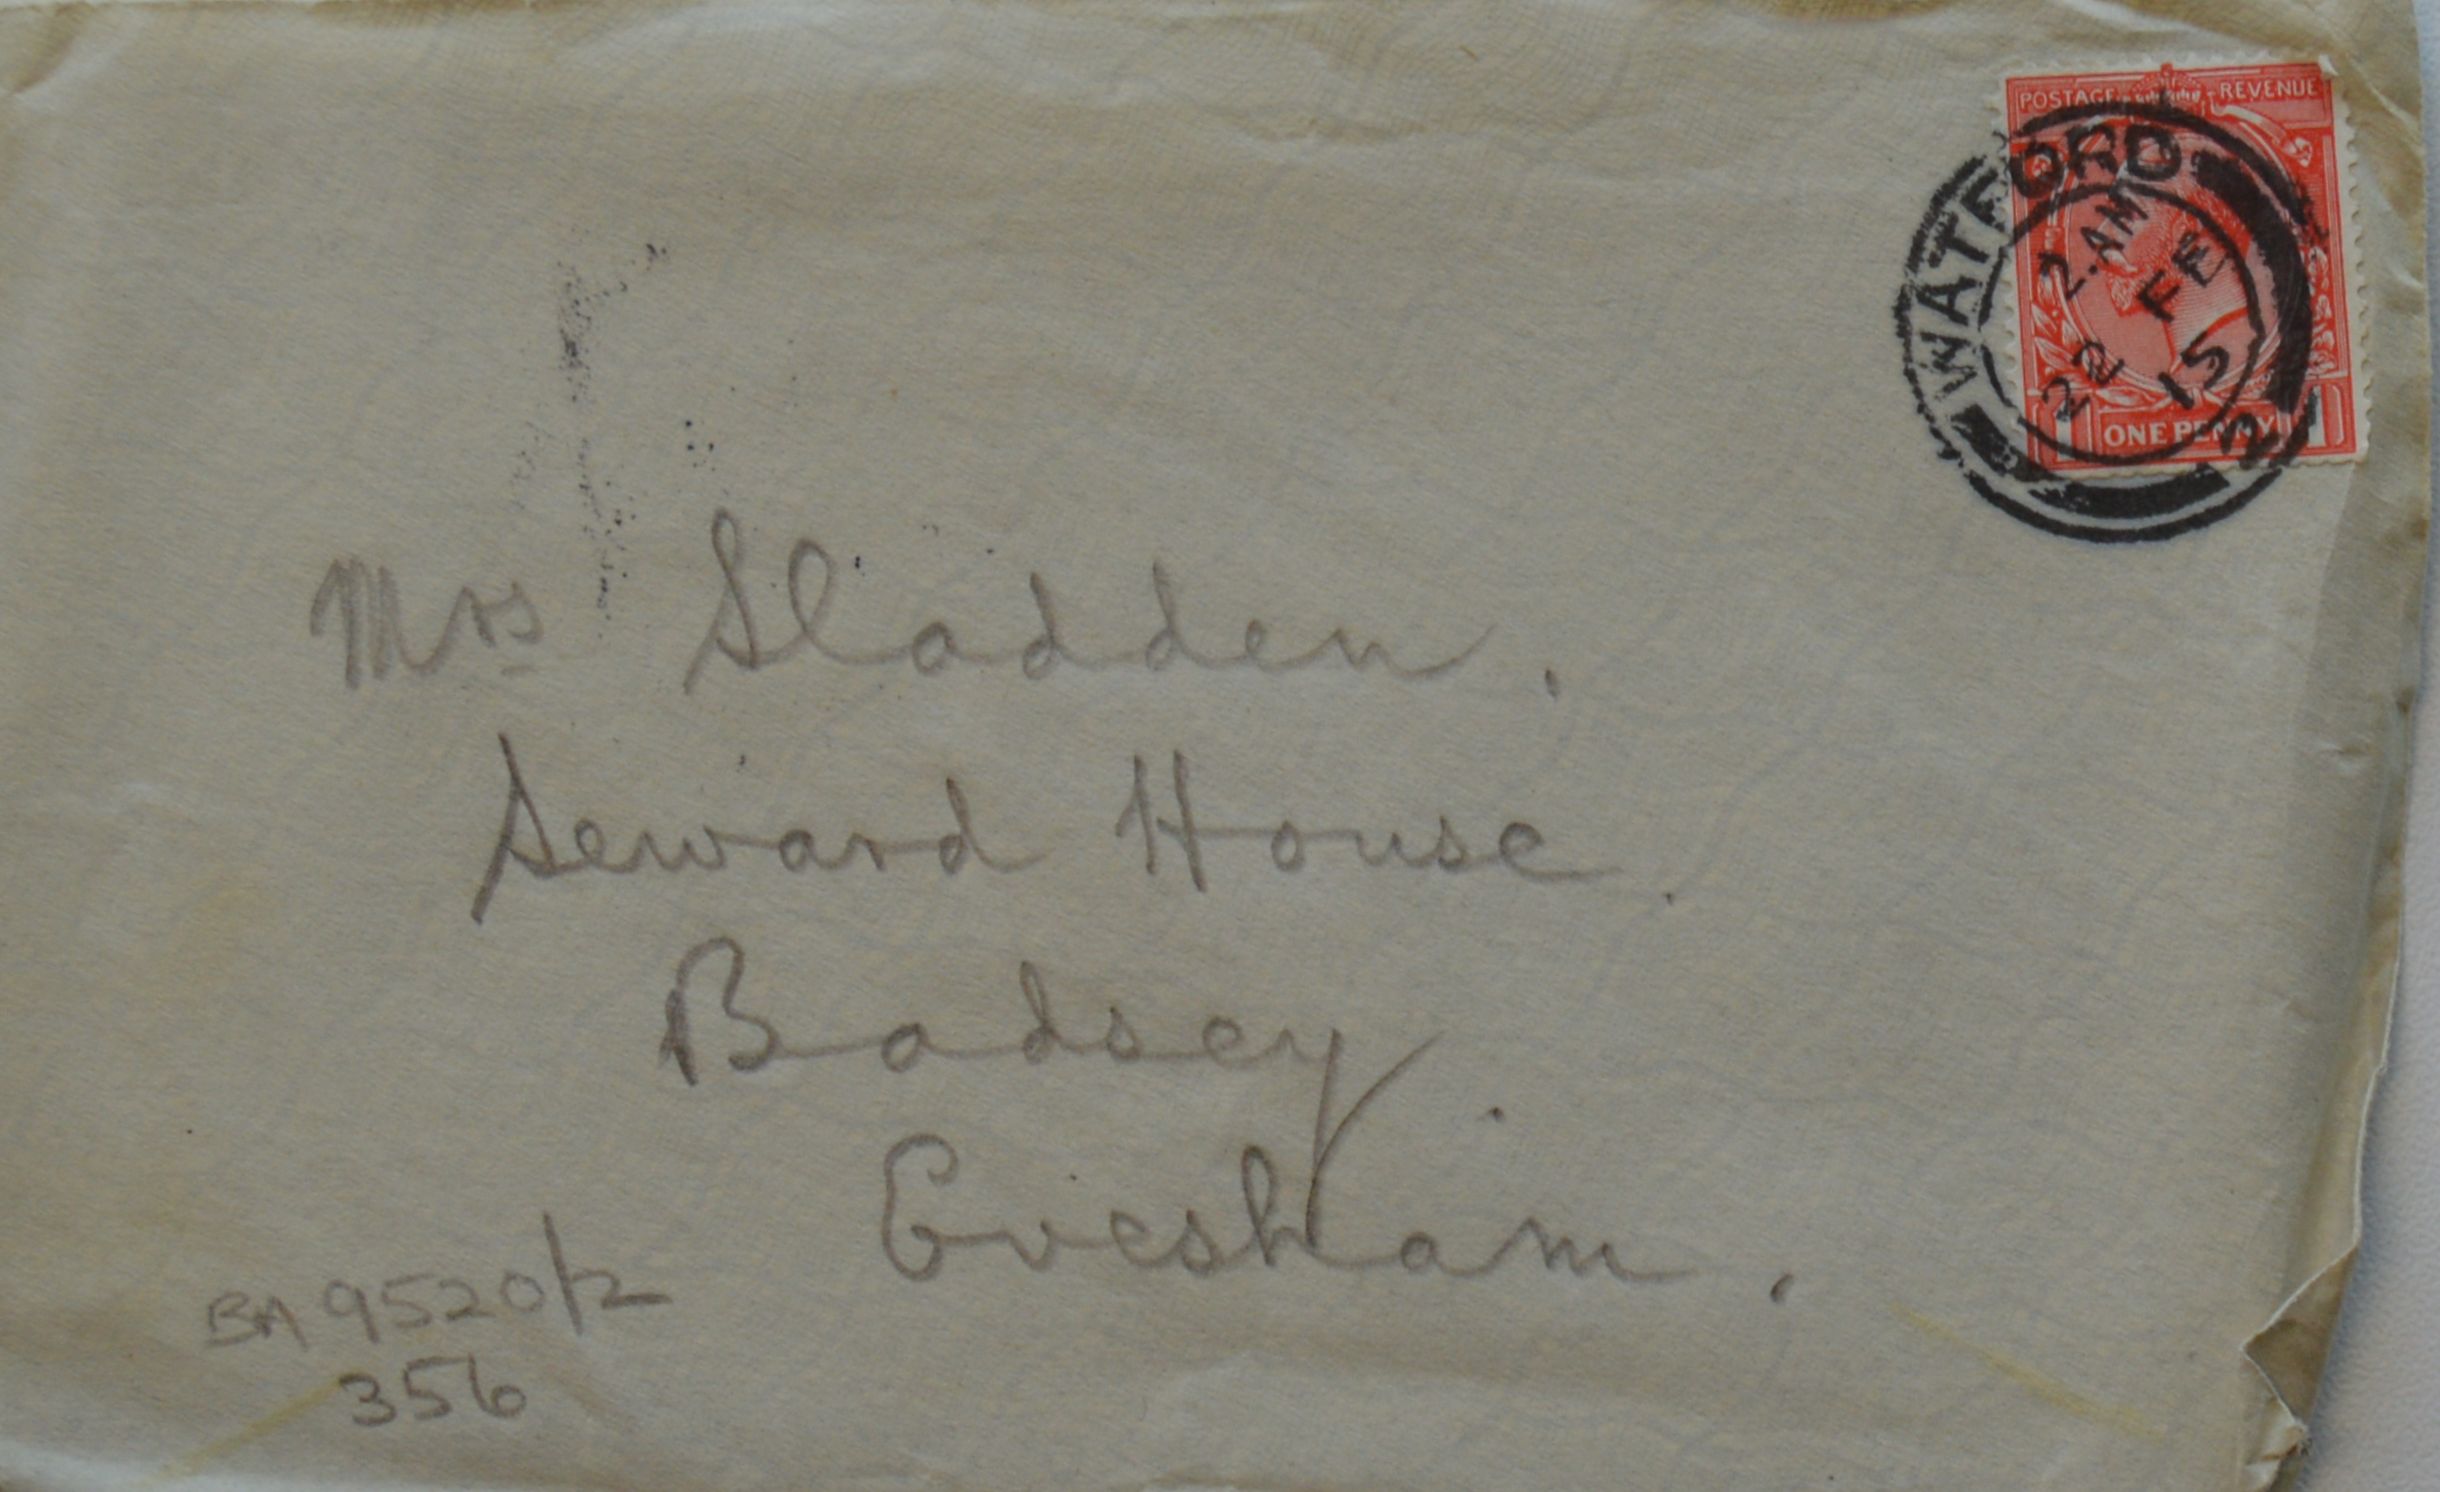 POSTAGE REVENUE
WATFORD
2. AM
22 FE
15
2
ONE PENNY
Mrs Sladden.
Seward House.
Badsey
Evesham.
BA 9520/2
356